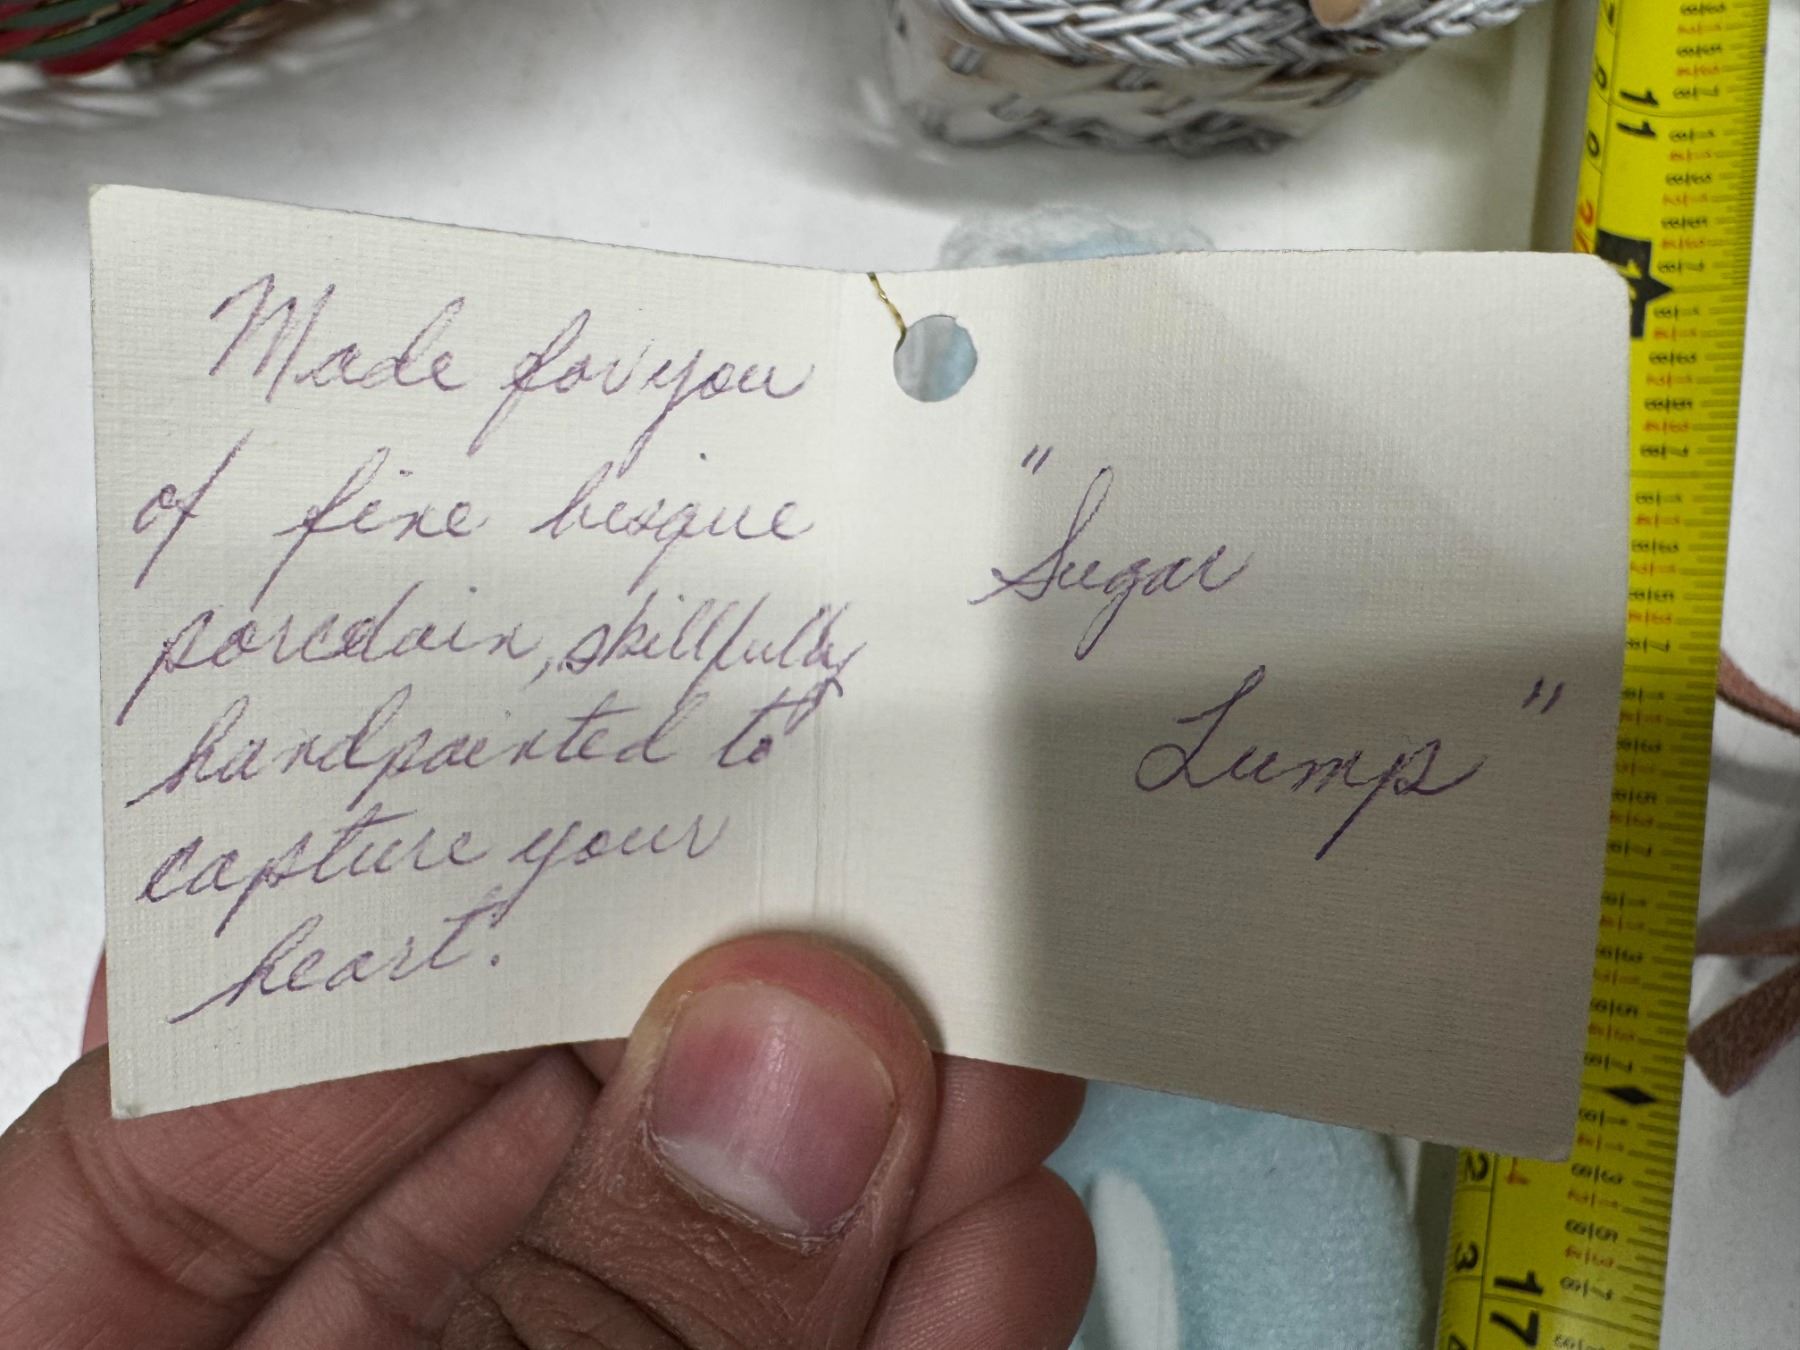 Made for you
of fine bisque
porcelain, skillfully
handpainted to
capture your
heart.
"Sugar
Lump"
11
17
2
3